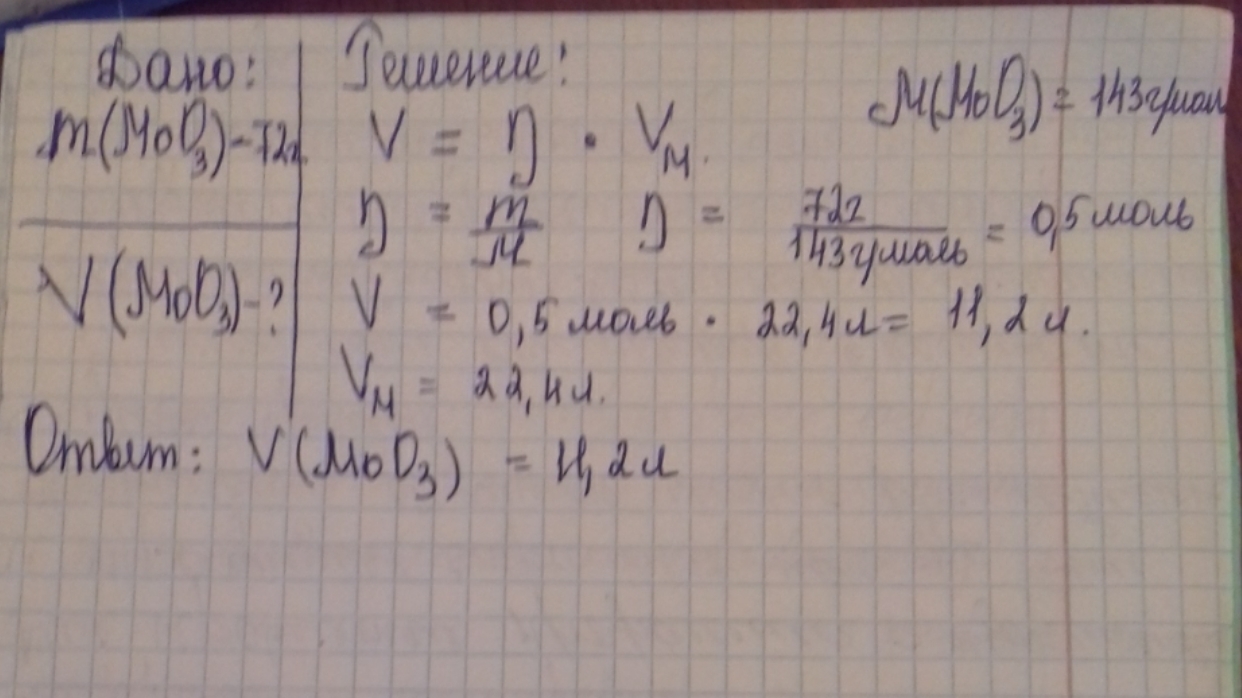 Дано:
m(MoO₃)-72г.
V(MoO₃)-?
Решение:
M(MoO₃) = 143г/мол
V = n · Vм.
n = m/M n = 72г/143г/моль = 0,5 моль
V = 0,5 моль · 22,4л = 11,2л.
Vм = 22,4л.
Ответ: V(MoO₃) = 11,2л